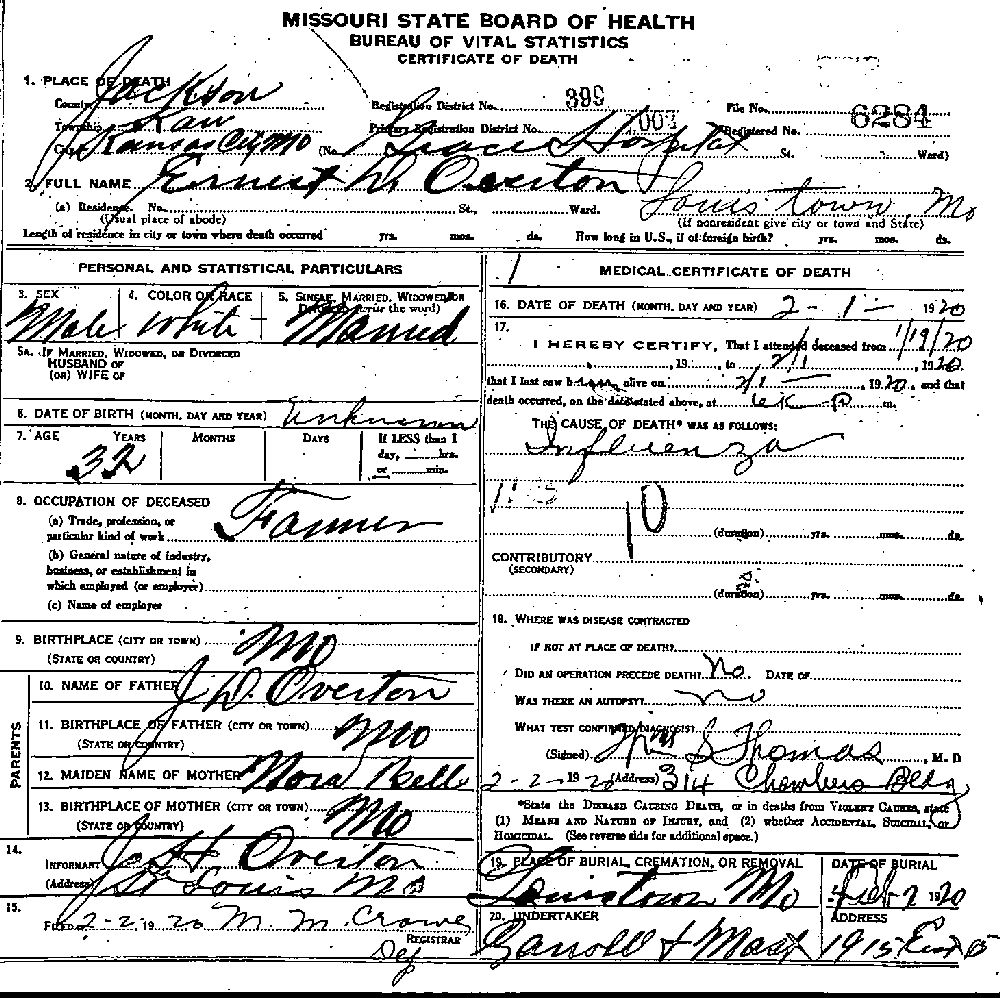 MISSOURI STATE BOARD OF HEALTH
BUREAU OF VITAL STATISTICS
CERTIFICATE OF DEATH
1. PLACE OF DEATH
County Jackson Registration District No. 399 File No.
Township Kaw Primary Registration District No. 1003 Registered No. 6284
City Kansas City Mo (No. Grace Hospital St. Ward)
2. FULL NAME Ernest W Overton
(a) Residence. No. St., Ward. Louis town Mo
(Usual place of abode) (If nonresident give city or town and State)
Length of residence in city or town where death occurred yrs. mos. ds. How long in U.S., if of foreign birth? yrs. mos. ds.
PERSONAL AND STATISTICAL PARTICULARS
3. SEX 4. COLOR OR RACE 5. SINGLE, MARRIED, WIDOWED OR
DIVORCED (write the word)
Male White Married
5A. IF MARRIED, WIDOWED, OR DIVORCED
HUSBAND OF
(OR) WIFE OF
6. DATE OF BIRTH (MONTH, DAY AND YEAR) Unknown
7. AGE YEARS MONTHS DAYS If LESS than 1
day, hrs.
or min.
32
8. OCCUPATION OF DECEASED
(a) Trade, profession, or
particular kind of work Farmer
(b) General nature of industry,
business, or establishment in
which employed (or employer)
(c) Name of employer
9. BIRTHPLACE (CITY OR TOWN) Mo
(STATE OR COUNTRY)
PARENTS
10. NAME OF FATHER J W. Overton
11. BIRTHPLACE OF FATHER (CITY OR TOWN) Mo
(STATE OR COUNTRY)
12. MAIDEN NAME OF MOTHER Nora Bell
13. BIRTHPLACE OF MOTHER (CITY OR TOWN) Mo
(STATE OR COUNTRY)
14.
INFORMANT Overton
(Address) St Louis Mo
15.
FILED 2-2- 1920 M. M. Crowe
REGISTRAR
MEDICAL CERTIFICATE OF DEATH
16. DATE OF DEATH (MONTH, DAY AND YEAR) 2 - 1 - 1920
17.
I HEREBY CERTIFY, That I attended deceased from 1/19/20
, 19 , to 2/1 , 1920
that I last saw h alive on 2/1 , 1920, and that
death occurred, on the date stated above, at m.
THE CAUSE OF DEATH* WAS AS FOLLOWS:
Influenza
10
(duration) yrs. mos. ds.
CONTRIBUTORY
(SECONDARY)
(duration) yrs. mos. ds.
18. WHERE WAS DISEASE CONTRACTED
IF NOT AT PLACE OF DEATH?
DID AN OPERATION PRECEDE DEATH? No. DATE OF
WAS THERE AN AUTOPSY? No
WHAT TEST CONFIRMED DIAGNOSIS?
(Signed) Wm S Thomas, M. D
2-2- 1920 (Address) 314 Chambers Bldg
*State the DISEASE CAUSING DEATH, or in deaths from VIOLENT CAUSES, state
(1) MEANS AND NATURE OF INJURY, and (2) whether ACCIDENTAL, SUICIDAL, or
HOMICIDAL. (See reverse side for additional space.)
19. PLACE OF BURIAL, CREMATION, OR REMOVAL DATE OF BURIAL
Louistown Mo Feb 2 1920
20. UNDERTAKER ADDRESS
Carroll & Mast 1915 East 15